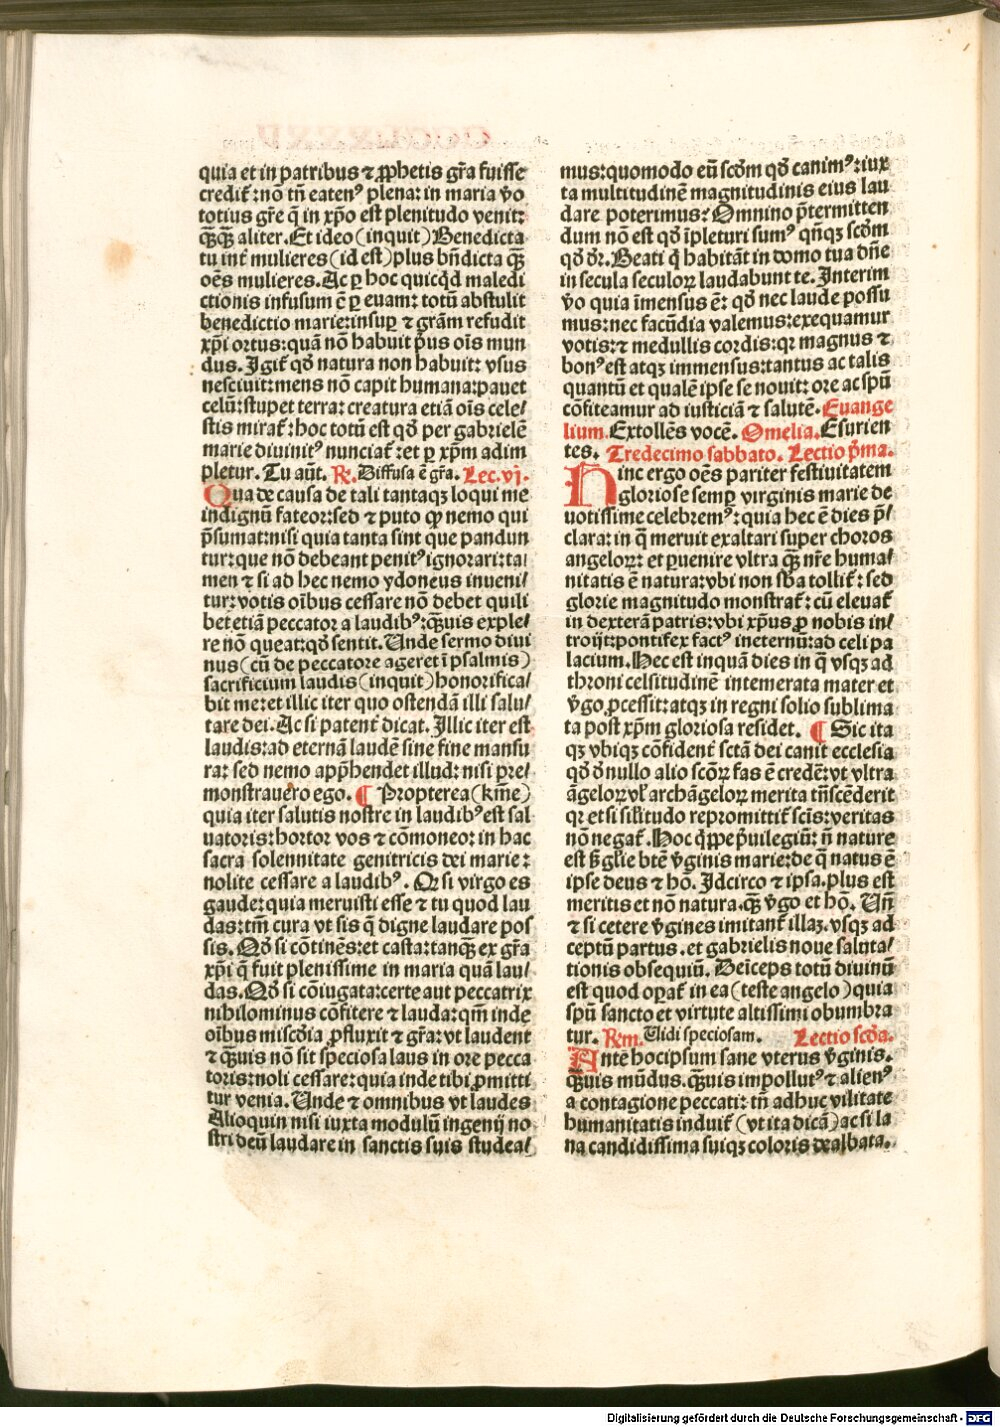 quia et in patribus ⁊ ꝓphetis gr̃a fuisse
credit᷑: nõ tñ eatenꝰ plena: in maria v̾o
totius gr̃e q̃ in xp̃o est plenitudo venit:
q̃ꝙ̃ aliter. Et ideo (inquit) Benedicta
tu int᷑ mulieres (id est) plus bñdicta ꝙ̃
oẽs mulieres. Ac ꝑ hoc quicqd̾ maledi
ctionis infusum ẽ ꝑ euam: totũ abstulit
benedictio marie: insuꝑ ⁊ grãm refudit
xp̃i ortus: quã nõ habuit p̾us oĩs mun
dus. Igit᷑ qd̾ natura non habuit: vsus
nesciuit: mens nõ capit humana: pauet
celũ: stupet terra: creatura etiã oĩs cele⸗
stis mirat᷑: hoc totũ est qd̾ per gabrielẽ
marie diuinitꝰ nunciat᷑: et ꝑ xp̃m adim
pletur. Tu aũt. R̃. Diffusa ẽ gr̃a. Lec. vj.
Qua de causa de tali tantaqꝫ loqui me
indignũ fateor: sed ⁊ puto ꝙ nemo qui
p̃sumat: nisi quia tanta sint que pandun
tur: que nõ debeant penitꝰ ignorari: ta⸗
men ⁊ si ad hec nemo ydoneus inueni⸗
tur: votis oĩbus cessare nõ debet quili
bet etiã peccator a laudibꝰ: q̃uis exple⸗
re nõ queat: qd̾ sentit. Unde sermo diui
nus (cũ de peccatore ageret ĩ psalmis)
sacrificium laudis (inquit) honorifica⸗
bit me: et illic iter quo ostendã illi salu⸗
tare dei. Ac si patent᷑ dicat. Illic iter est
laudis: ad eternã laudẽ sine fine mansu
ra: sed nemo app̃hendet illud: nisi pre⸗
monstrauero ego. ¶ Propterea (kr̃me)
quia iter salutis nostre in laudibꝰ est sal
uatoris: hortor vos ⁊ cõmoneo: in hac
sacra solennitate genitricis dei marie:
nolite cessare a laudibꝰ. Qr̃ si virgo es
gaude: quia meruisti esse ⁊ tu quod lau
das: tm̃ cura vt sis q̃ digne laudare pos
sis. Qd̾ si cõtinẽs: et casta: tanꝙ̃ ex gr̃a
xp̃i q̃ fuit plenissime in maria quã lau⸗
das. Qd̾ si cõiugata: certe aut peccatrix
nihilominus cõfitere ⁊ lauda: qm̃ inde
oĩbus mis̃cdia ꝓfluxit ⁊ gr̃a: vt laudent
⁊ q̃uis nõ sit speciosa laus in ore pecca
toris: noli cessare: quia inde tibi ꝓmitti
tur venia. Unde ⁊ omnibus vt laudes
Alioquin nisi iuxta modulũ ingenij no
stri deũ laudare in sanctis suis studea⸗
mus: quomodo eũ scd̾m qd̾ canimꝰ: iux
ta multitudinẽ magnitudinis eius lau
dare poterimus? Omnino p̃termitten
dum nõ est qd̾ ĩpleturi sumꝰ qñqꝫ scd̾m
qd̾ dr̃. Beati q̾ habitãt in domo tua dñe
in secula seculoꝝ laudabunt te. Interim
v̾o quia ĩmensus ẽ: qd̾ nec laude possu
mus: nec facũdia valemus: exequamur
votis: ⁊ medullis cordis: qr̃ magnus ⁊
bonꝰ est atqꝫ immensus: tantus ac talis
quantũ et qualẽ ipse se nouit: ore ac spũ
cõfiteamur ad iusticiã ⁊ salutẽ. Euange
lium. Extollẽs vocẽ. Omelia. Esurien
tes. Tredecimo sabbato. Lectio p̾ma.
Hinc ergo oẽs pariter festiuitatem
gloriose semꝑ virginis marie de
uotissime celebremꝰ: quia hec ẽ dies p̃⸗
clara: in q̃ meruit exaltari super choros
angeloꝝ: et ꝑuenire vltra ꝙ̃ nr̃e huma⸗
nitatis ẽ natura: vbi non sb̾a tollit᷑: sed
glorie magnitudo monstrat᷑: cũ eleuat᷑
in dexterã patris: vbi xp̃us ꝓ nobis in⸗
troijt: pontifex factꝰ ineternũ: ad celi pa
lacium. Hec est inquã dies in q̃ vsqꝫ ad
throni celsitudinẽ intemerata mater et
v̾go ꝓcessit: atqꝫ in regni solio sublima
ta post xp̃m gloriosa residet. ¶ Sic ita
qꝫ vbiqꝫ cõfident᷑ sctã dei canit ecclesia
qd̾ d̾ nullo alio scõꝝ fas ẽ credẽ: vt vltra
ãgeloꝝ vl̾ archãgeloꝝ merita trñscẽderit
qr̃ et si sil̾itudo repromittit᷑ scĩs: veritas
nõ negat᷑. Hoc q̾ppe p̾uilegiũ: ñ nature
est sꝫ gl̾ie btẽ v̾ginis marie: de q̃ natus ẽ
ipse deus ⁊ hõ. Idcirco ⁊ ipsa. plus est
meritis et nõ natura. ꝙ̃ v̾go et hõ. Uñ
⁊ si cetere v̾gines imitant᷑ illaꝫ. vsqꝫ ad
ceptũ partus. et gabrielis noue saluta⸗
tionis obsequiũ. Deĩceps totũ diuinũ
est quod oꝑat᷑ in ea (teste angelo) quia
spũ sancto et virtute altissimi obumbra
tur. Rm̃. Uidi speciosam. Lectio scd̾a.
Ante hocipsum sane vterus v̾ginis.
q̃uis mũdus. q̃uis impollutꝰ ⁊ alienꝰ
a contagione peccati: tñ adhuc vilitate
humanitatis induit᷑ (vt ita dicã) ac si la
na candidissima suiqꝫ coloris dealbata.
Digitalisierung gefördert durch die Deutsche Forschungsgemeinschaft - DFG